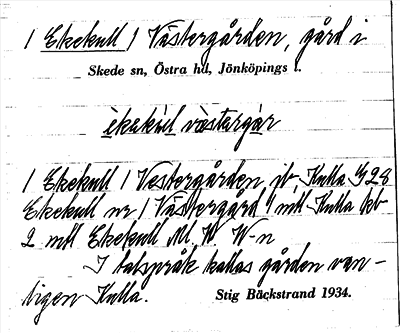 / Ekekull / Västergården, gård i
Skede sn, Östra hd, Jönköpings l.
ekekul västərgar
/ Ekekull / Vestergården jb, Kulla G28
Ekekull nr 1 Västergård 1 mtl Kulla kb
2 mtl Ekekull
I talspråk kallas gården van-
ligen Kulla.
Stig Bäckstrand 1934.